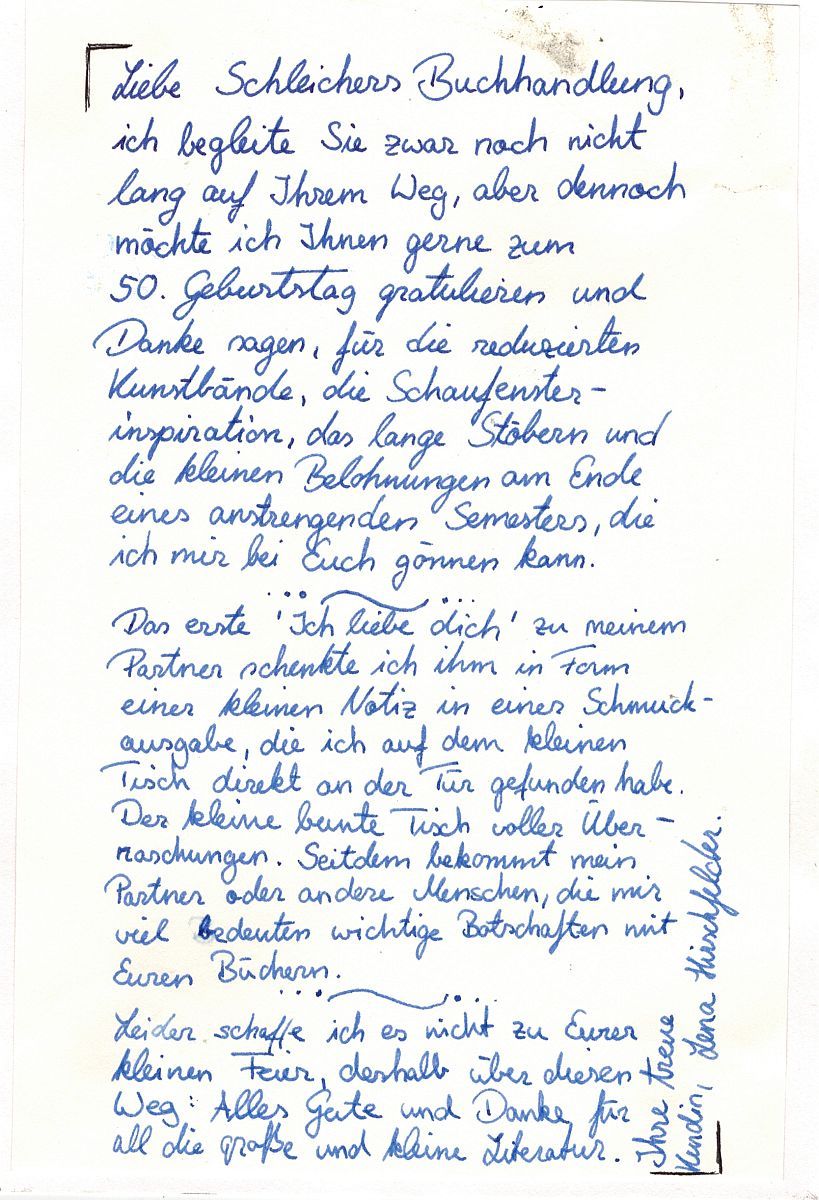 Liebe Schleichers Buchhandlung,
ich begleite Sie zwar noch nicht
lang auf Ihrem Weg, aber dennoch
möchte ich Ihnen gerne zum
50. Geburtstag gratulieren und
Danke sagen, für die reduzierten
Kunstbände, die Schaufenster-
inspiration, das lange Stöbern und
die kleinen Belohnungen am Ende
eines anstrengenden Semesters, die
ich mir bei Euch gönnen kann.
Das erste 'Ich liebe dich' zu meinem
Partner schenkte ich ihm in Form
einer kleinen Notiz in einer Schmuck-
ausgabe, die ich auf dem kleinen
Tisch direkt an der Tür gefunden habe.
Der kleine bunte Tisch voller Über-
raschungen. Seitdem bekommt mein
Partner oder andere Menschen, die mir
viel bedeuten wichtige Botschaften mit
Euren Büchern.
Leider schaffe ich es nicht zu Eurer
kleinen Feier, deshalb über diesen
Weg: Alles Gute und Danke für
all die große und kleine Literatur.
Ihre treue
Kundin, Lena Hirschfelder.